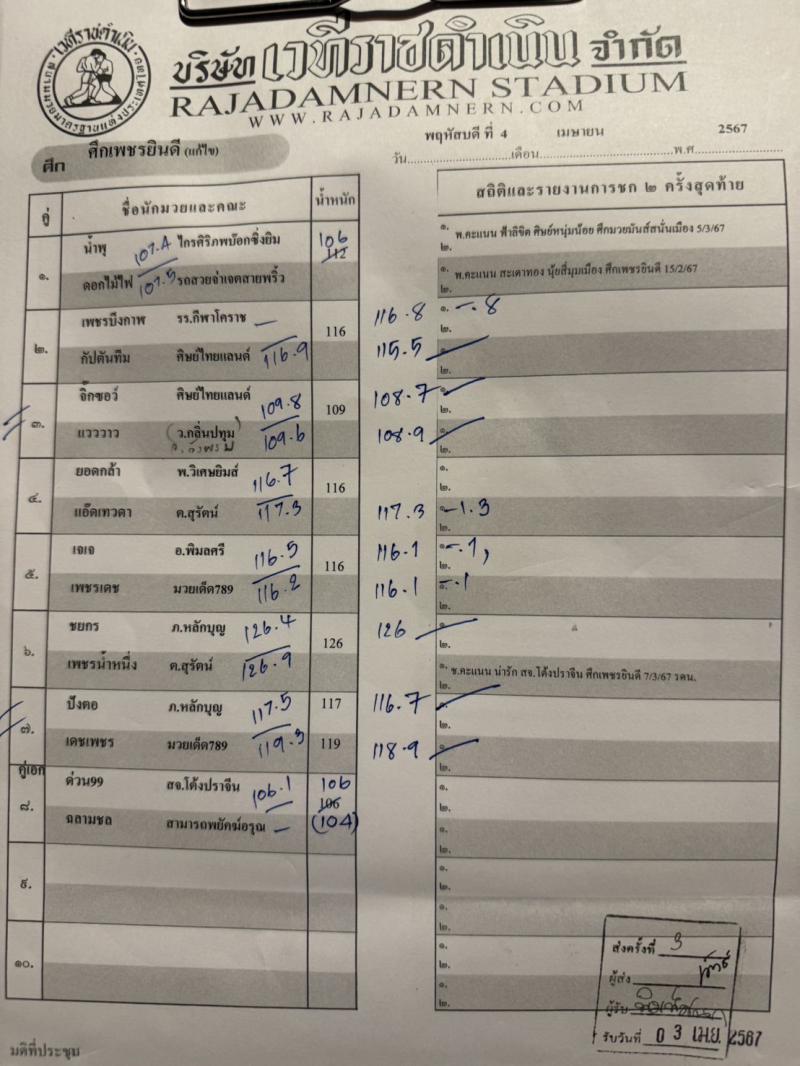 เวทีราชดำเนิน
บริษัท เวทีราชดำเนิน จำกัด
RAJADAMNERN STADIUM
WWW.RAJADAMNERN.COM
ศึก ศึกเพชรยินดี (แก้ไข)
วัน พฤหัสบดี ที่ 4 เดือน เมษายน พ.ศ. 2567
คู่ ชื่อนักมวยและคณะ น้ำหนัก สถิติและรายงานการชก ๒ ครั้งสุดท้าย
๑. น้ำพุ 107.4 ไกรศิริภพบ๊อกซิ่งยิม 106 112 ๑. พ.คะแนน ฟ้าลิขิต ศิษย์หนุ่มน้อย ศึกมวยมันส์สนั่นเมือง 5/3/67
๒.
ดอกไม้ไฟ 107.5 รถสวยจ่าเจตสายพริ้ว ๑. พ.คะแนน สะเดาทอง นุ้ยสี่มุมเมือง ศึกเพชรยินดี 15/2/67
๒.
๒. เพชรบึงกาฬ รร.กีฬาโคราช — 116 116.8 ๑. -.8
๒.
กัปตันทีม ศิษย์ไทยแลนด์ 116.9 115.5 ๑.
๒.
๓. จิ๊กซอว์ ศิษย์ไทยแลนด์ 109.8 109 108.7 ๑.
๒.
แวววาว (ว.กลิ่นปทุม) 109.6 108.9 ๑.
๒.
๔. ยอดกล้า พ.วิเศษยิมส์ 116.7 116 ๑.
๒.
แอ๊ดเทวดา ต.สุรัตน์ 117.3 117.3 ๑. -1.3
๒.
๕. เจเจ อ.พิมลศรี 116.5 116 116.1 ๑. -.1
๒.
เพชรเดช มวยเด็ด789 116.2 116.1 ๑. -.1
๒.
๖. ชยกร ภ.หลักบุญ 126.4 126 126 ๑.
๒.
เพชรน้ำหนึ่ง ต.สุรัตน์ 126.9 ๑. ช.คะแนน น่ารัก สจ.โต้งปราจีน ศึกเพชรยินดี 7/3/67 รดน.
๒.
๗. ปังตอ ภ.หลักบุญ 117.5 117 116.7 ๑.
๒.
เดชเพชร มวยเด็ด789 119.3 119 118.9 ๑.
๒.
คู่เอก
๘. ด่วน99 สจ.โต้งปราจีน 106.1 106 106 ๑.
๒.
ฉลามชล สามารถพยัคฆ์อรุณ — (104) ๑.
๒.
๙. ๑.
๒.
๑.
๒.
๑๐. ๑.
๒.
๑.
๒.
ส่งครั้งที่ 3
ผู้ส่ง
ผู้รับ
รับวันที่ 03 เม.ย. 2567
มติที่ประชุม